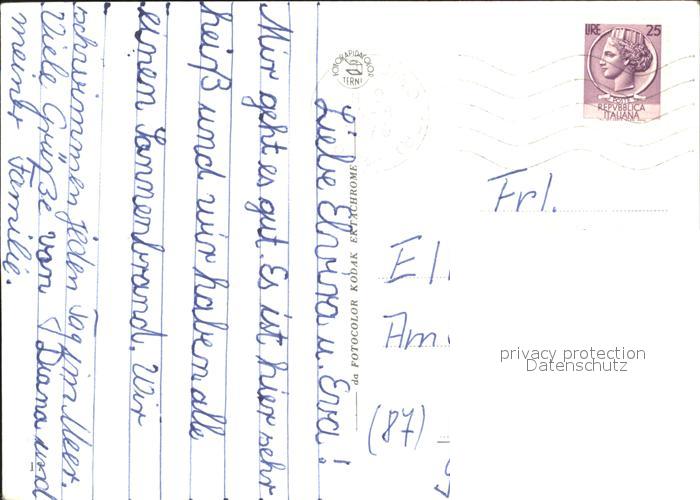 Liebe Elvira u. Eva!
Mir geht es gut. Es ist hier sehr
heiß und wir haben alle
einen Sonnenbrand. Wir
schwimmen jeden Tag im Meer.
Viele Grüße von Diana und
meiner Familie.
da FOTOCOLOR KODAK EKTACHROME
FOTORAPIDACOLOR
TERNI
LIRE 25
POSTE
REPVBBLICA
ITALIANA
Frl.
El
Am
(87)
privacy protection
Datenschutz